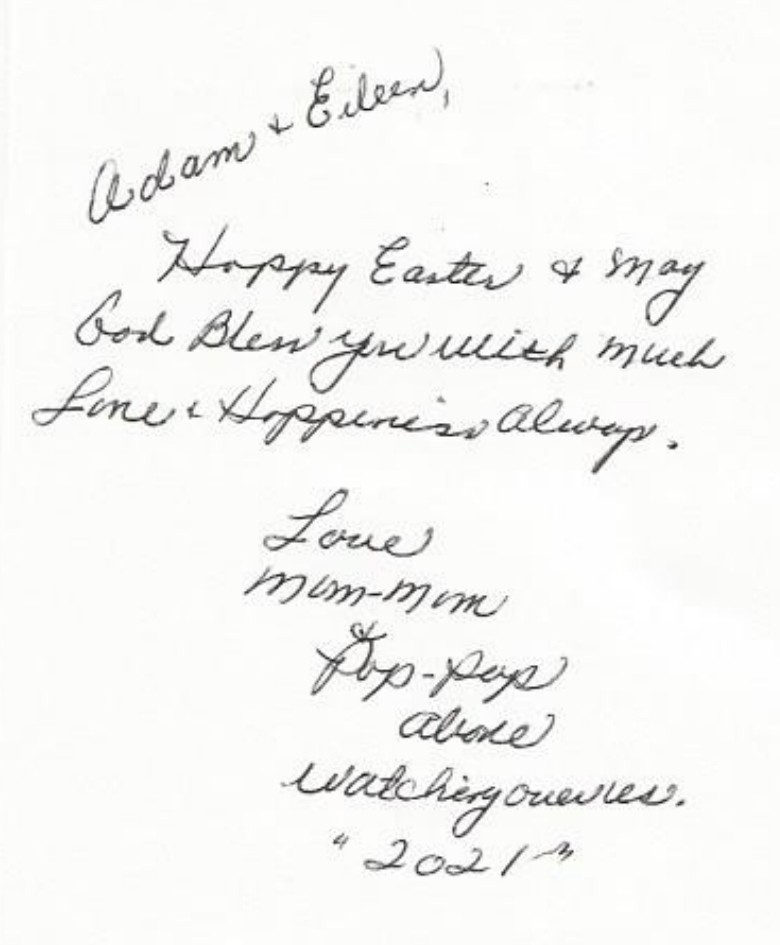 Adam & Eileen,
Happy Easter & may
God Bless you with much
Love & Happiness Always.
Love
Mom-Mom
&
Pop-Pop
above
watching over us.
"2021"